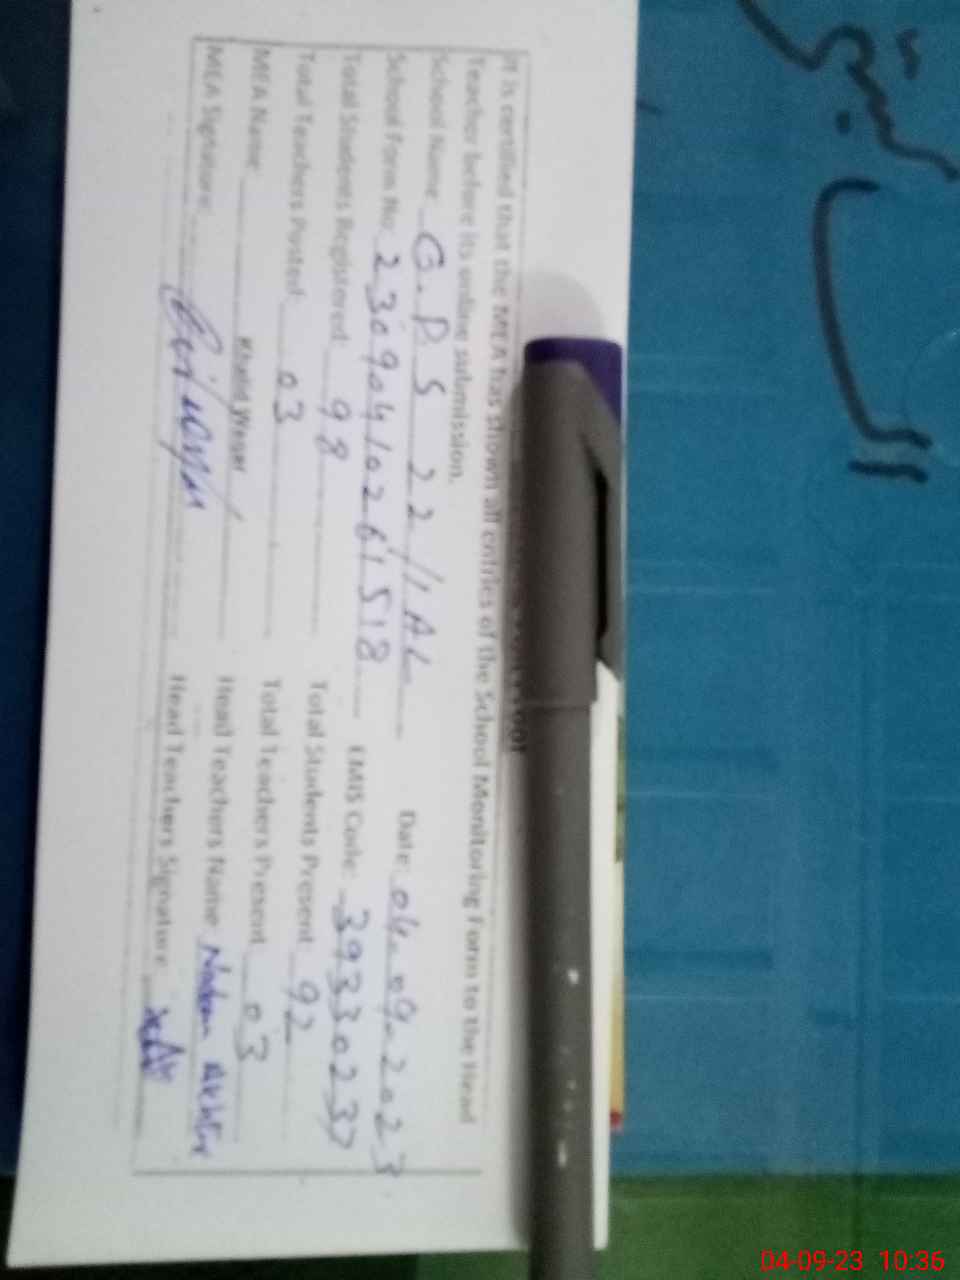 It is certified that the MEA has shown all entries of the School Monitoring Form to the Head
Teacher before its online submission.
School Name G.P.S 22/1AL Date: 04.09.2023
School Form No: 23090410261518 EMIS Code: 39330237
Total Students Registered: 98 Total Students Present 92
Total Teachers Posted: 03 Total Teachers Present 03
MEA Name: Khalid Weser Head Teachers Name Nadeem Akhtar
MEA Signature: Head Teachers Signature
04-09-23 10:36